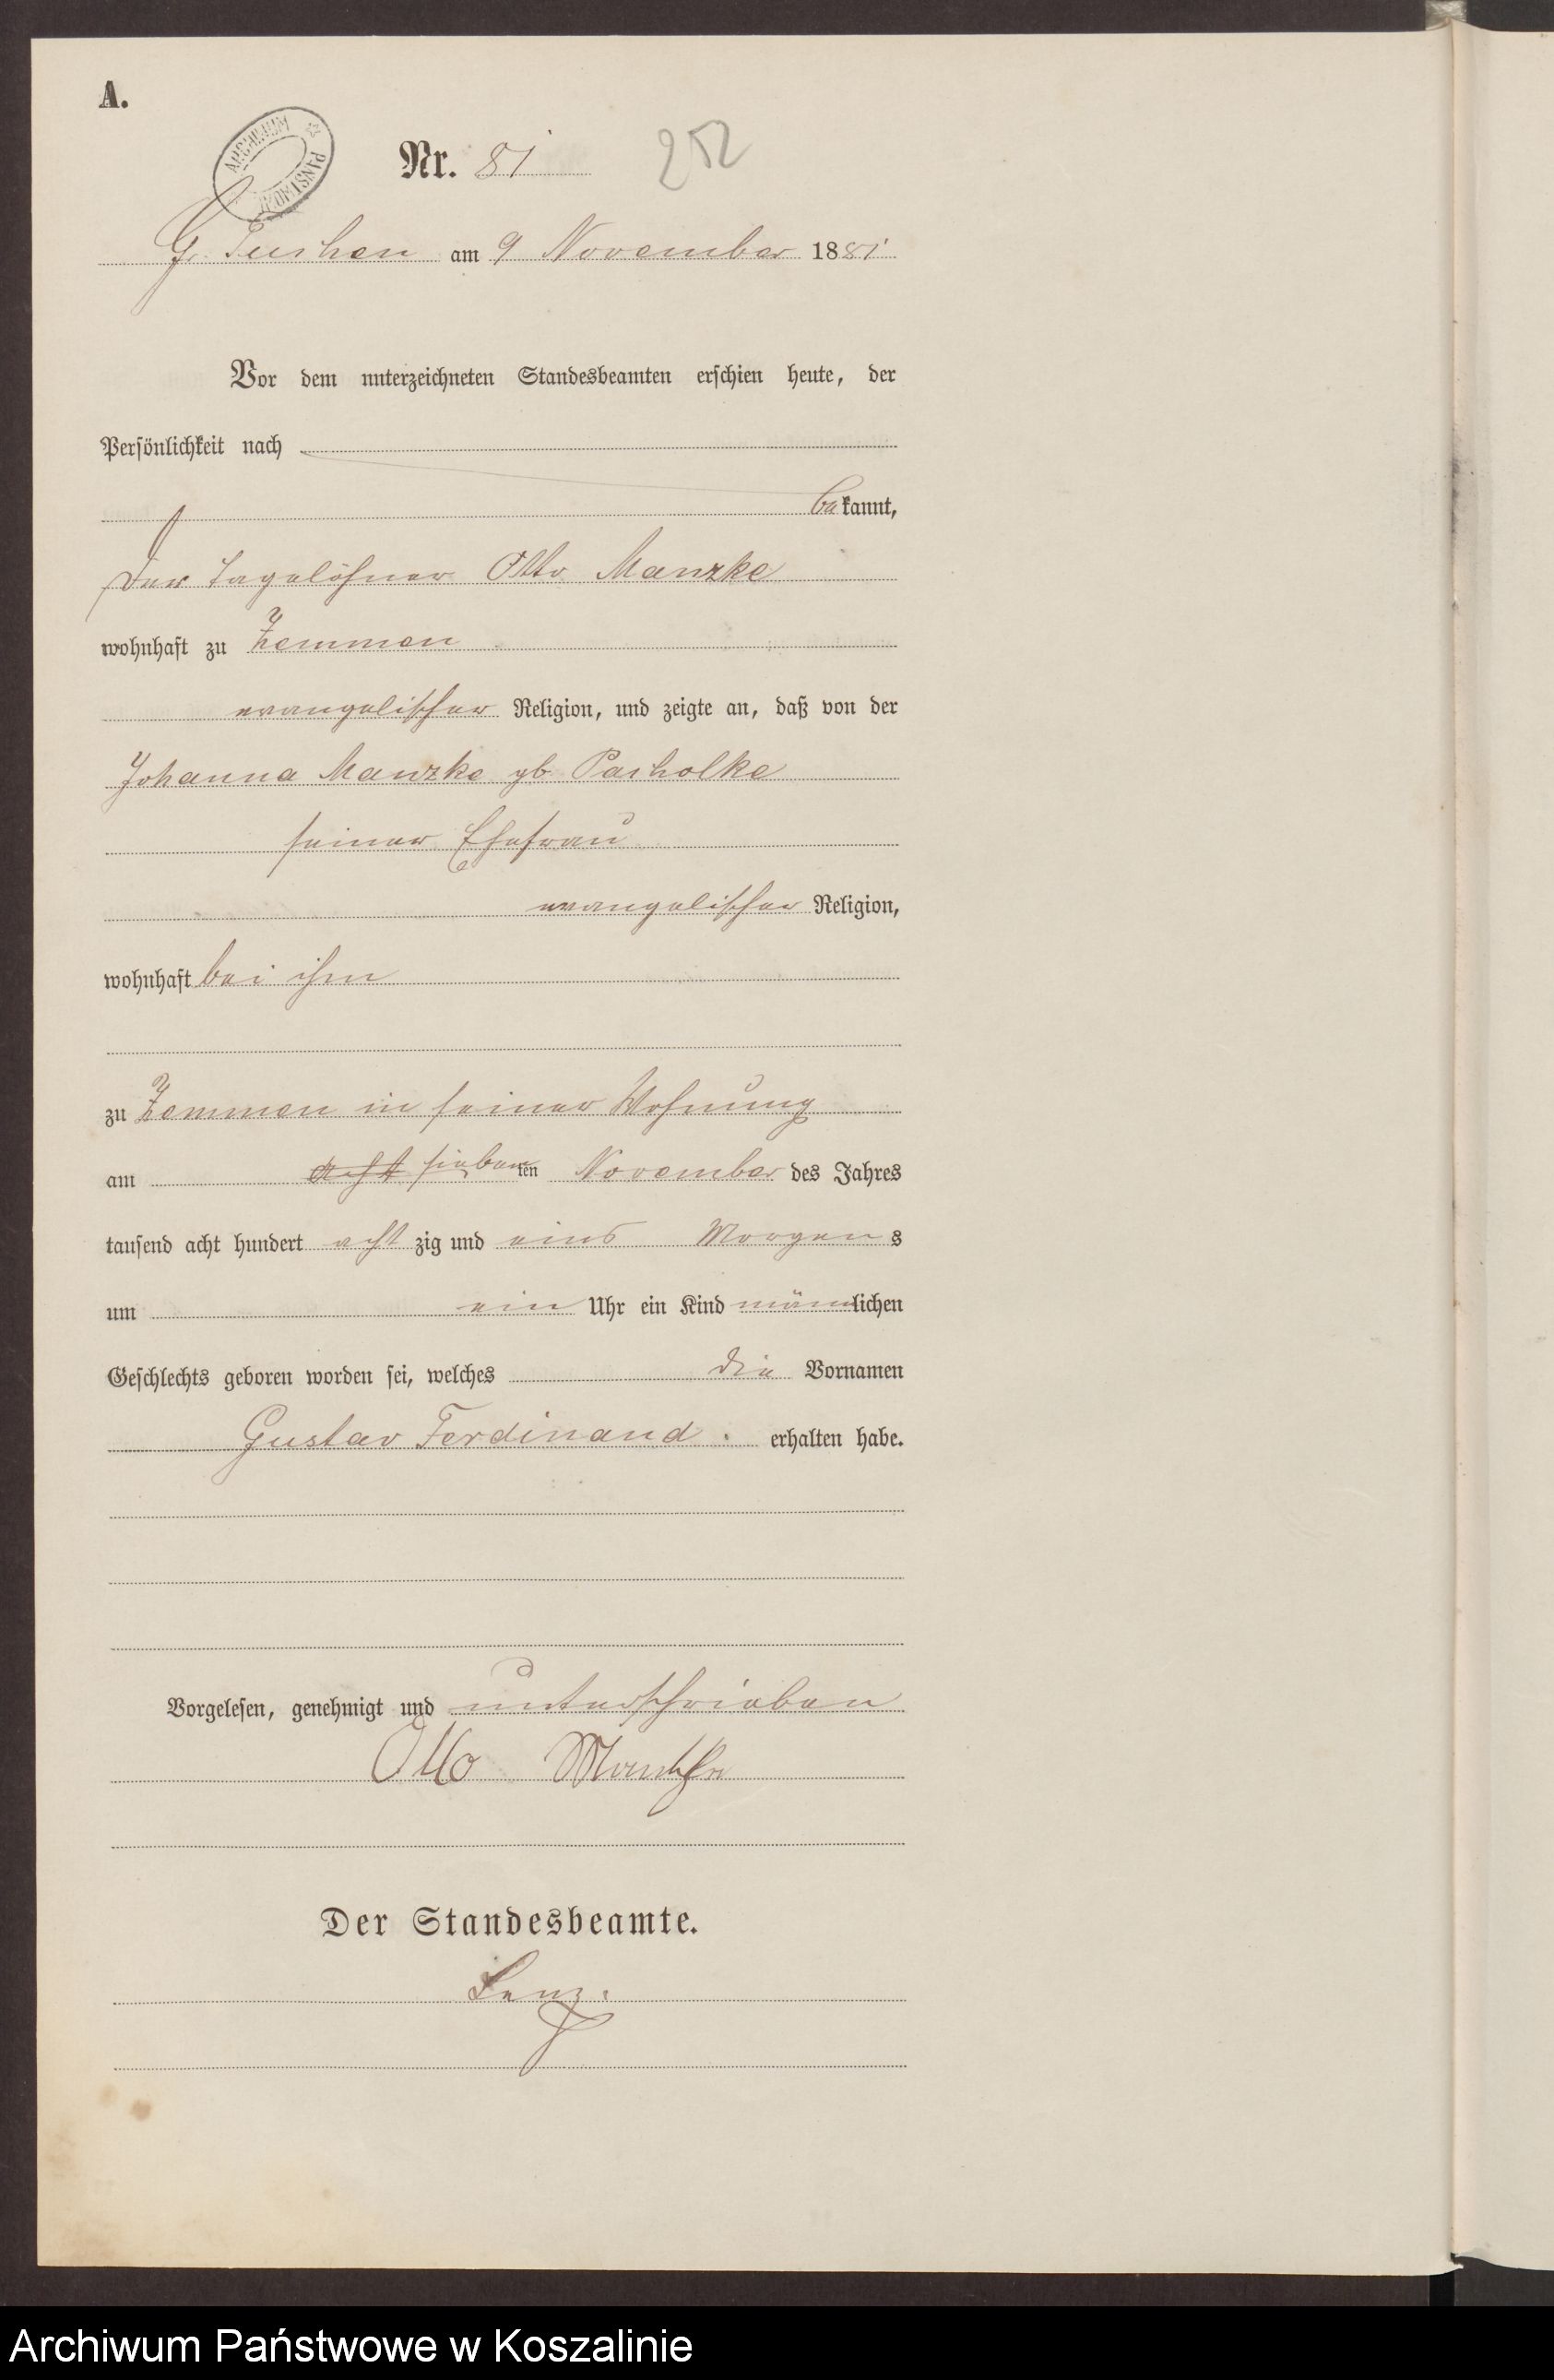 A.
ARCHIWUM PAŃSTWOWE
Nr. 81 252
Gr. Tuchen am 9 November 1881
Vor dem unterzeichneten Standesbeamten erschien heute, der
Persönlichkeit nach
bekannt,
der Tagelöhner Otto Manzke
wohnhaft zu Zemmen
evangelischer Religion, und zeigte an, daß von der
Johanna Manzke gb Pacholke
seiner Ehefrau
evangelischer Religion,
wohnhaft bei ihm
zu Zemmen in seiner Wohnung
am acht siebenten November des Jahres
tausend acht hundert acht zig und eins Morgens
um ein Uhr ein Kind männlichen
Geschlechts geboren worden sei, welches die Vornamen
Gustav Ferdinand. erhalten habe.
Vorgelesen, genehmigt und unterschrieben
Otto
Der Standesbeamte.
Lenz.
Archiwum Państwowe w Koszalinie